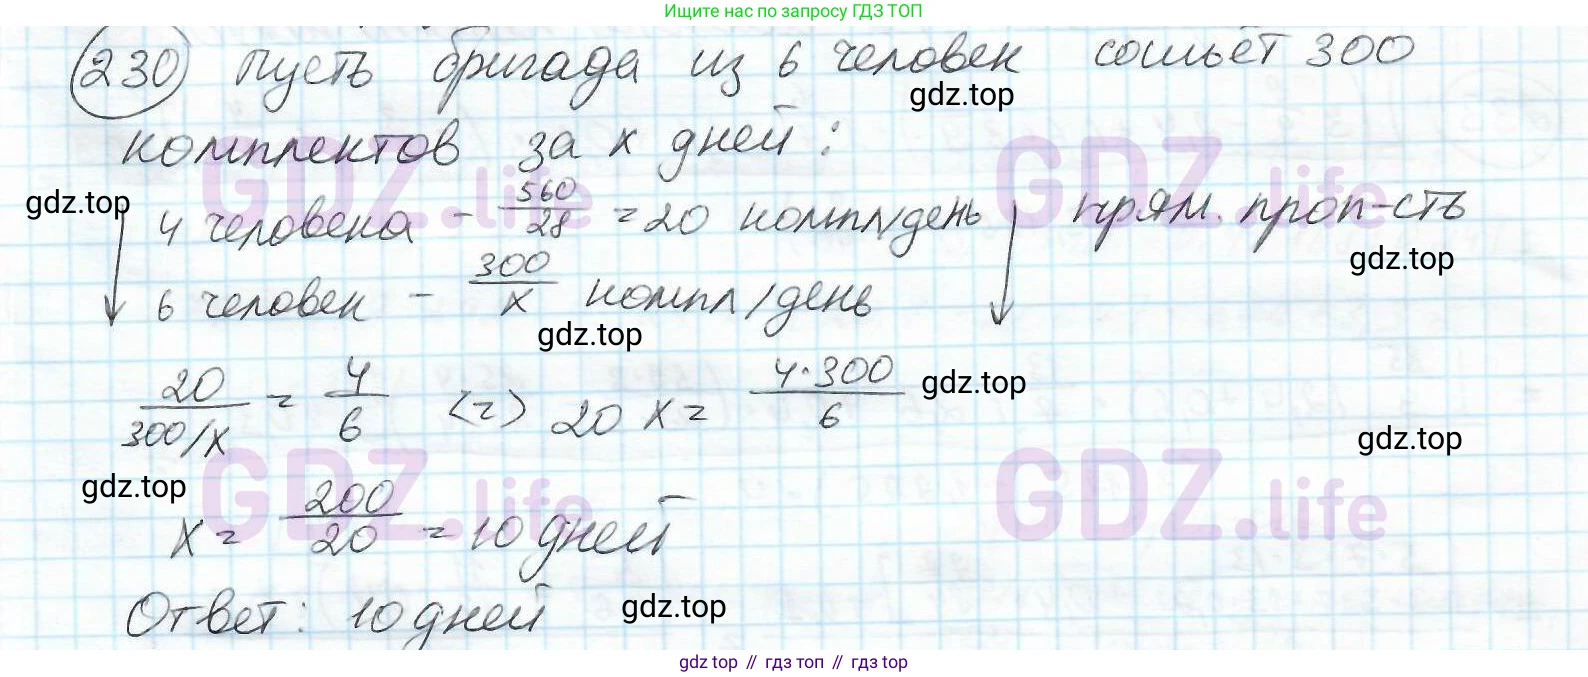 Ищите нас по запросу ГДЗ ТОП
230 Пусть бригада из 6 человек сошьёт 300
gdz.top
комплектов за x дней:
GDZ.life GDZ.life
gdz.top
4 человека - 560/28 = 20 компл/день прям. проп-сть
gdz.top
6 человек - 300/x компл/день
gdz.top
20/(300/x) = 4/6 (=) 20 x = (4·300)/6 gdz.top
gdz.top
GDZ.life GDZ.life
gdz.top
x = 200/20 = 10 дней
Ответ: 10 дней gdz.top
gdz top // гдз топ // гдз top